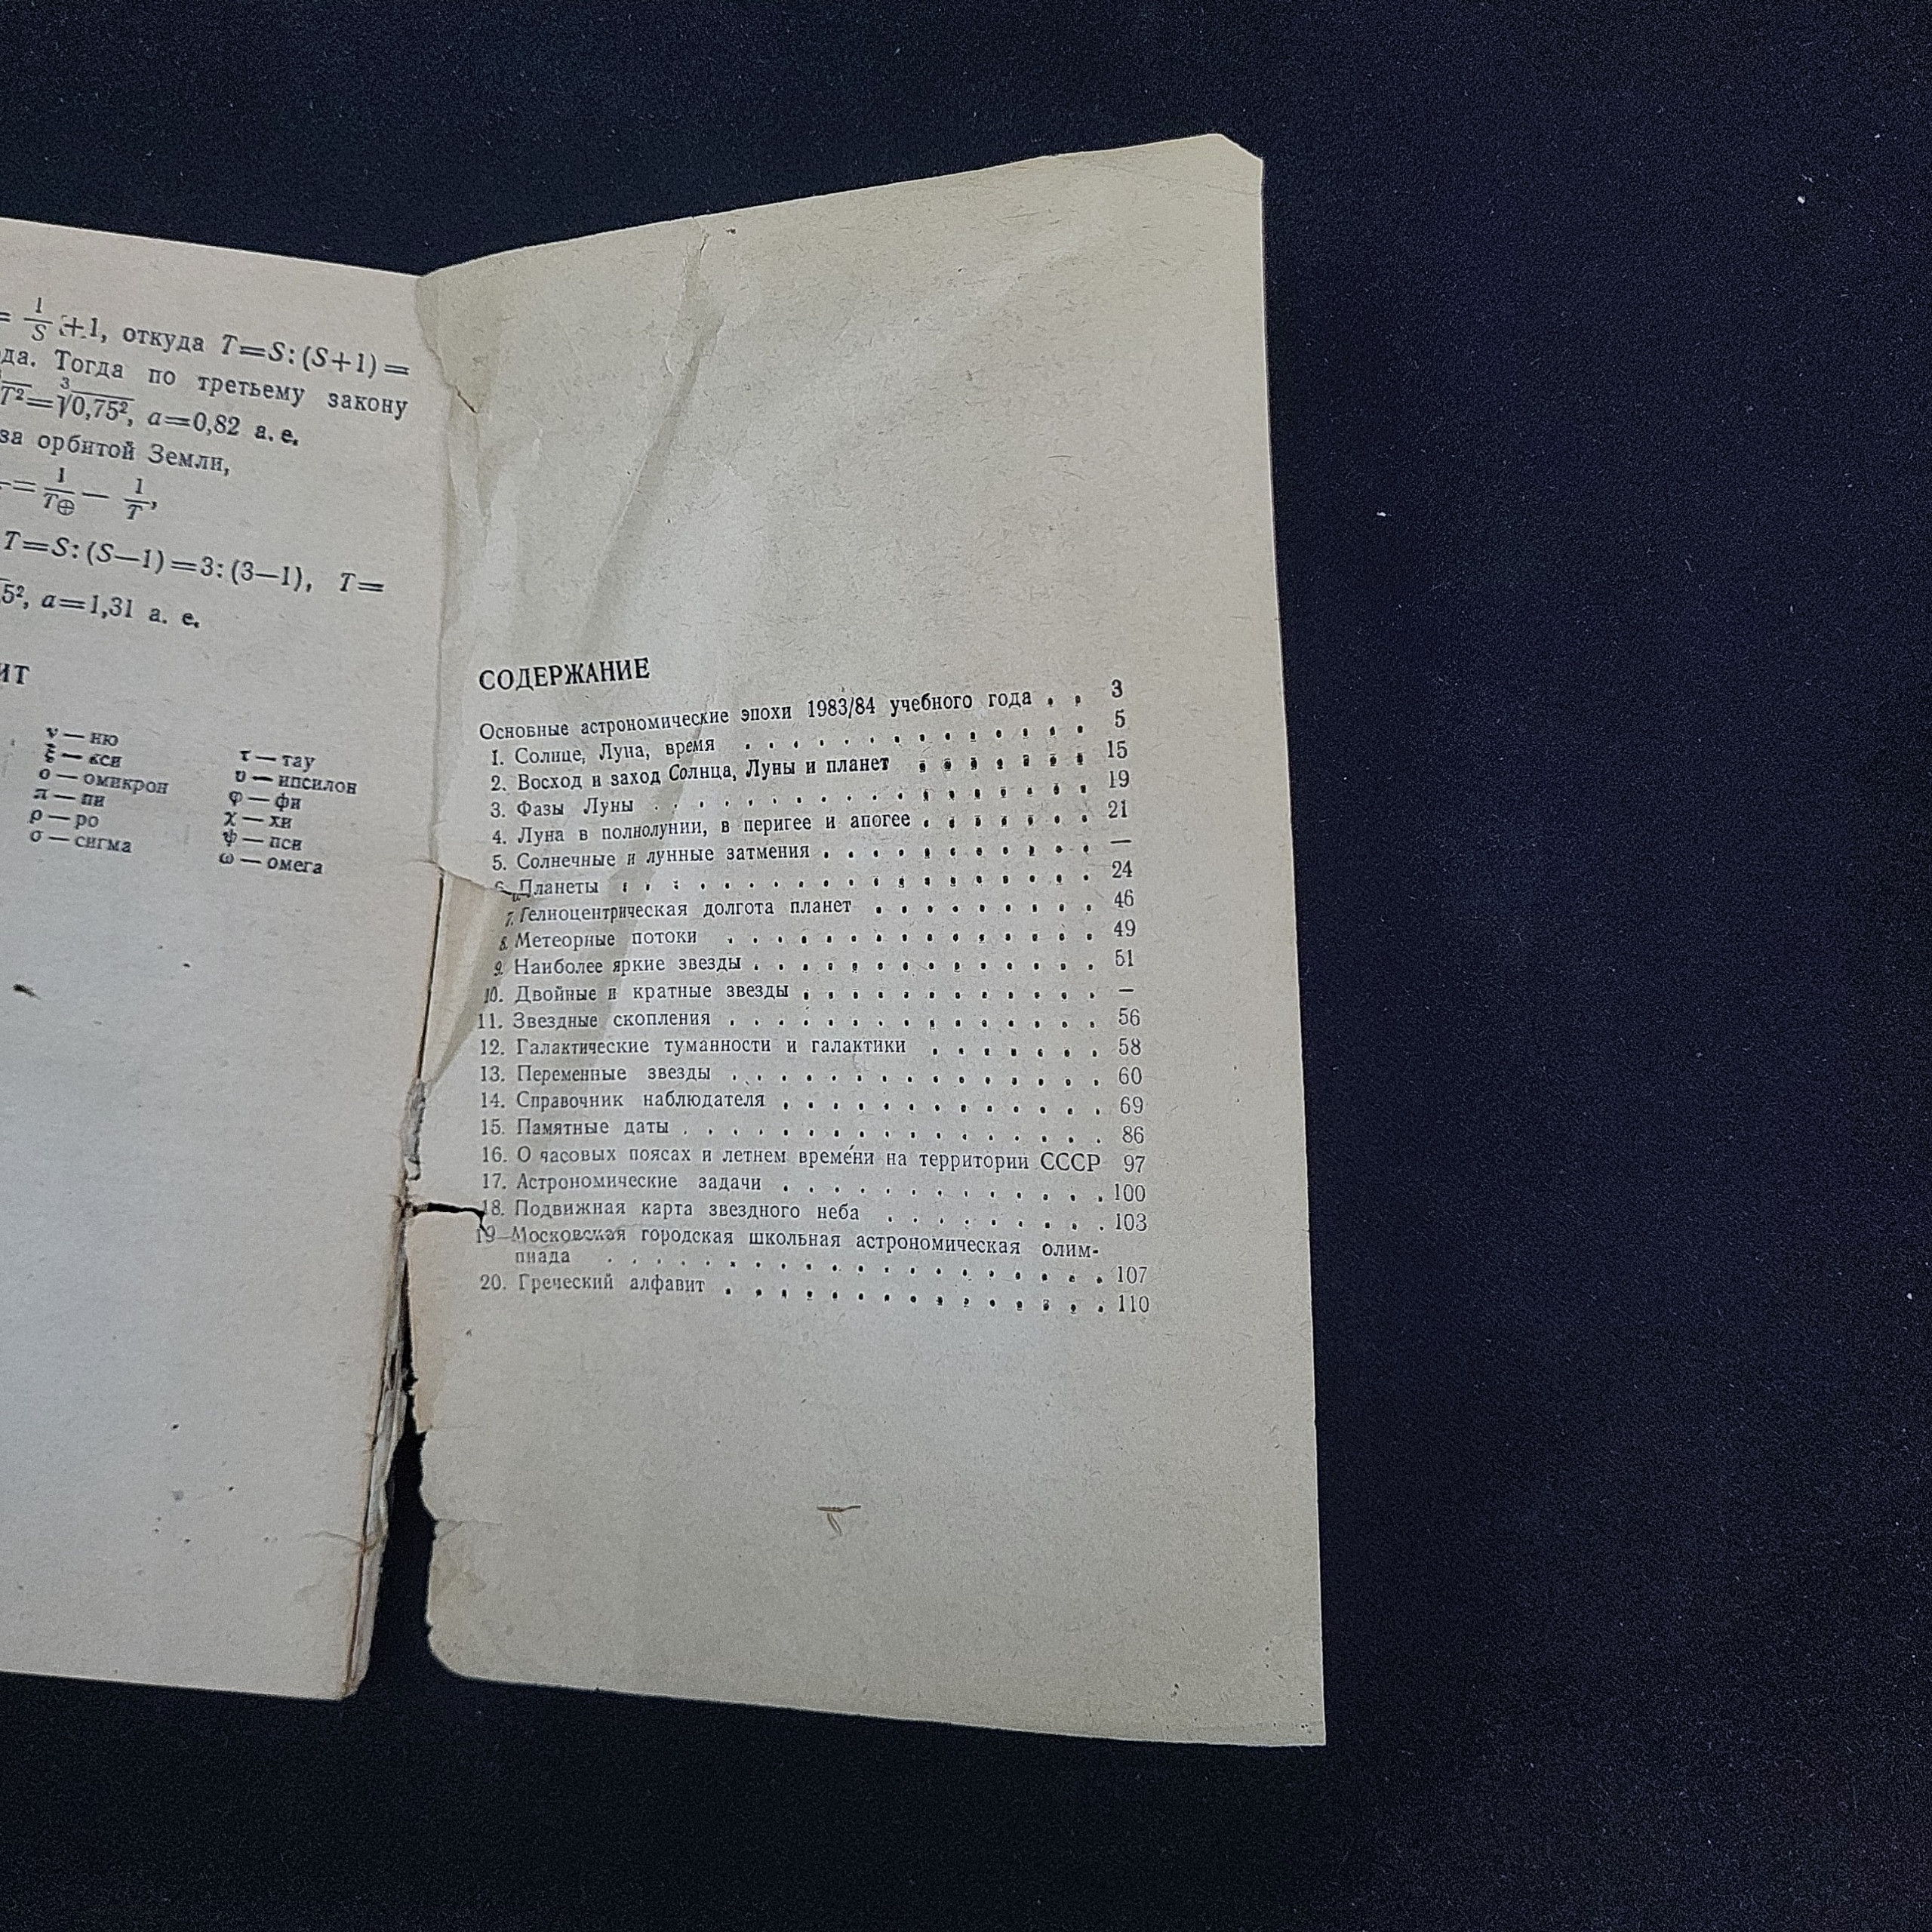 = 1/S +1, откуда T=S:(S+1)=
да. Тогда по третьему закону
T²=∛0,75², a=0,82 а. е.
за орбитой Земли,
= 1/T⊕ — 1/T,
T=S:(S—1)=3:(3—1), T=
5², a=1,31 а. е.
ИТ
ν — ню
ξ — кси
ο — омикрон
π — пи
ρ — ро
σ — сигма
τ — тау
υ — ипсилон
φ — фи
χ — хи
ψ — пси
ω — омега
СОДЕРЖАНИЕ
Основные астрономические эпохи 1983/84 учебного года . . 3
1. Солнце, Луна, время . . . . . . . . . . . . . . 5
2. Восход и заход Солнца, Луны и планет . . . . . . . 15
3. Фазы Луны . . . . . . . . . . . . . . . . . . 19
4. Луна в полнолунии, в перигее и апогее . . . . . . . 21
5. Солнечные и лунные затмения . . . . . . . . . . . —
6. Планеты . . . . . . . . . . . . . . . . . . . 24
7. Гелиоцентрическая долгота планет . . . . . . . . . 46
8. Метеорные потоки . . . . . . . . . . . . . . . 49
9. Наиболее яркие звезды . . . . . . . . . . . . . . 51
10. Двойные и кратные звезды . . . . . . . . . . . . —
11. Звездные скопления . . . . . . . . . . . . . . . 56
12. Галактические туманности и галактики . . . . . . . 58
13. Переменные звезды . . . . . . . . . . . . . . . 60
14. Справочник наблюдателя . . . . . . . . . . . . . 69
15. Памятные даты . . . . . . . . . . . . . . . . . 86
16. О часовых поясах и летнем време́ни на территории СССР 97
17. Астрономические задачи . . . . . . . . . . . . . 100
18. Подвижная карта звездного неба . . . . . . . . . 103
19 Московская городская школьная астрономическая олим-
пиада . . . . . . . . . . . . . . . . . . . . 107
20. Греческий алфавит . . . . . . . . . . . . . . . 110